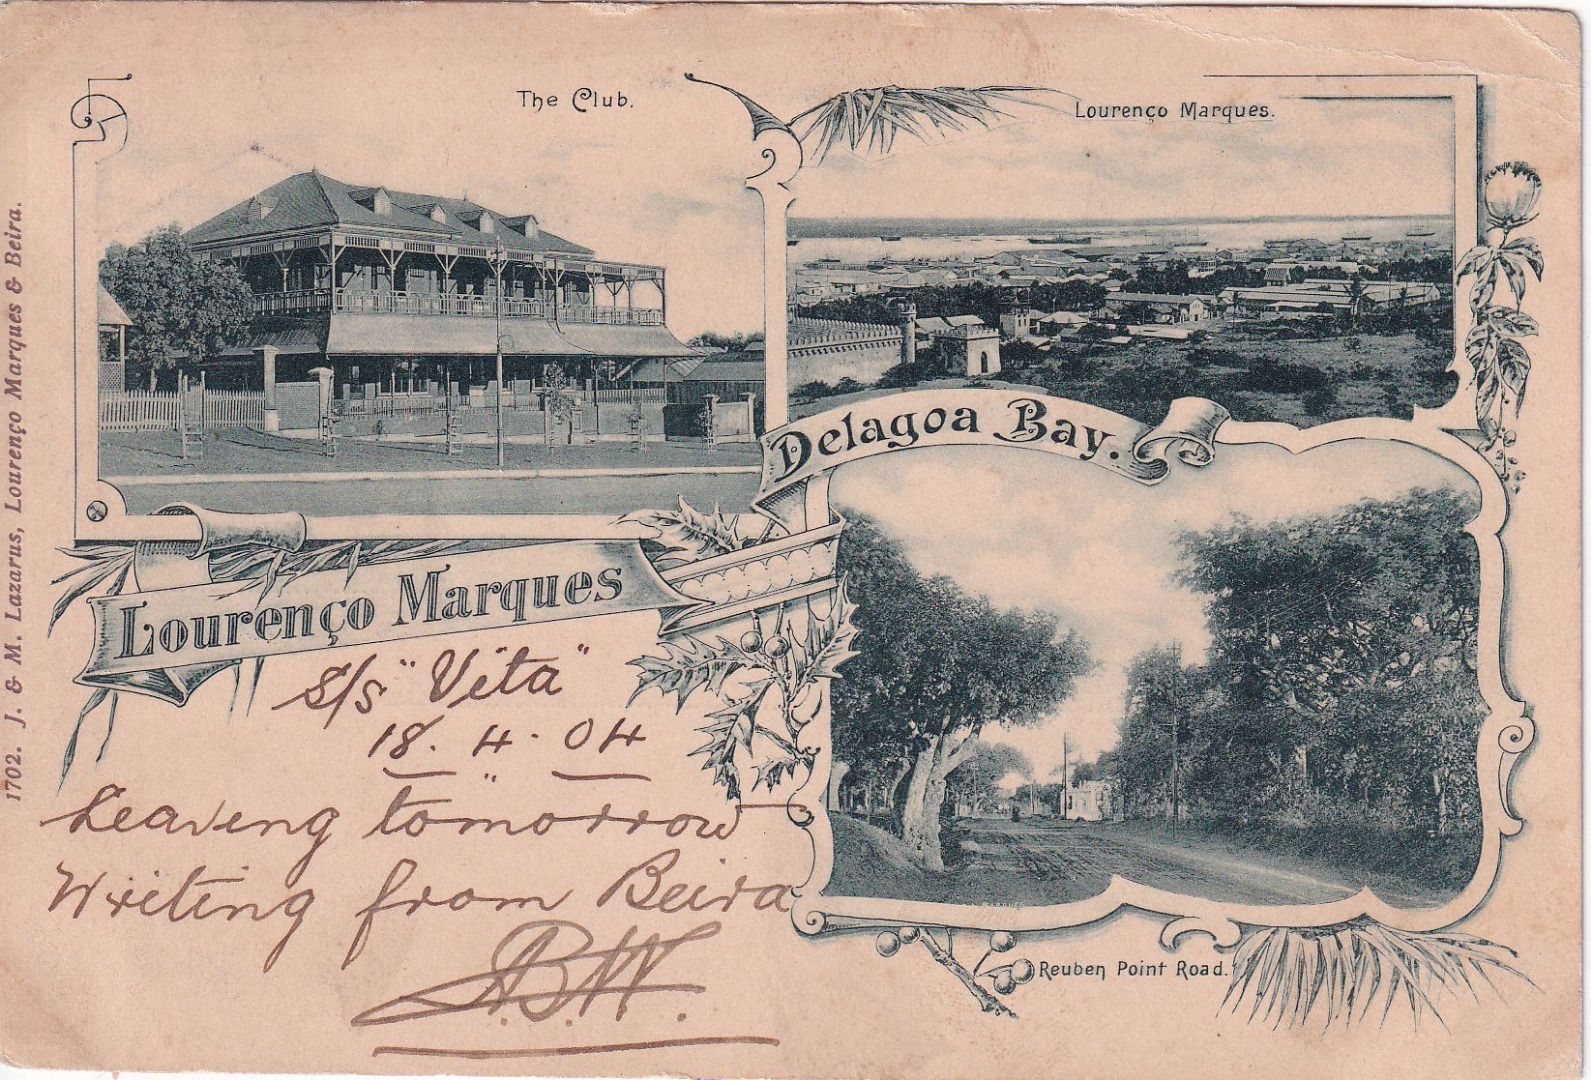 The Club.
Lourenço Marques.
Delagoa Bay.
Lourenço Marques
S/S "Vita"
18. 4. 04
Leaving tomorrow
Writing from Beira
A.B.W.
Reuben Point Road.
1702. J. & M. Lazarus, Lourenço Marques & Beira.